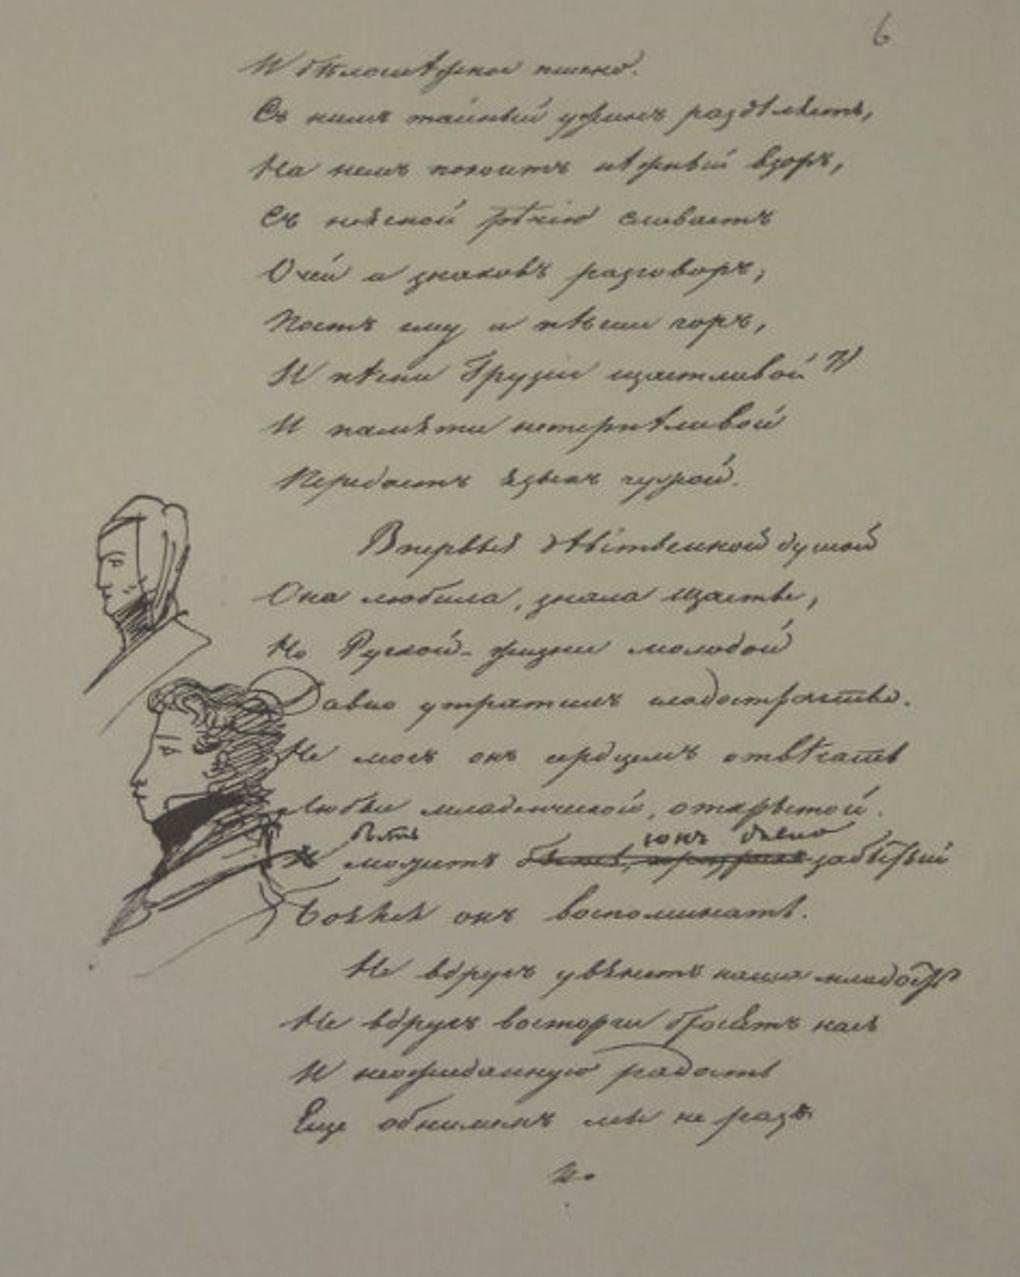 6
И бѣлоснѣжное пшено.
Съ нимъ тайный ужинъ раздѣляетъ,
На немъ покоитъ нѣжный взоръ,
Съ неясной рѣчію сливаетъ
Очей и знаковъ разговоръ,
Поетъ ему и пѣсни горъ,
И пѣсни Грузіи щастливой 7)
И памяти нетерпѣливой
Передаетъ языкъ чужой.
Впервыя дѣвственной душой
Она любила, знала щастье,
Но Руской жизни молодой
Давно утратилъ сладострастье.
Не могъ онъ сердцемъ отвѣчать
Любви младенческой, открытой.
быть сонъ давно
можетъ быть, забытый
Боялся онъ воспоминать.
Не вдругъ увянетъ наша младость
Не вдругъ восторги бросятъ насъ
И неожиданную радость
Еще обнимемъ мы не разъ